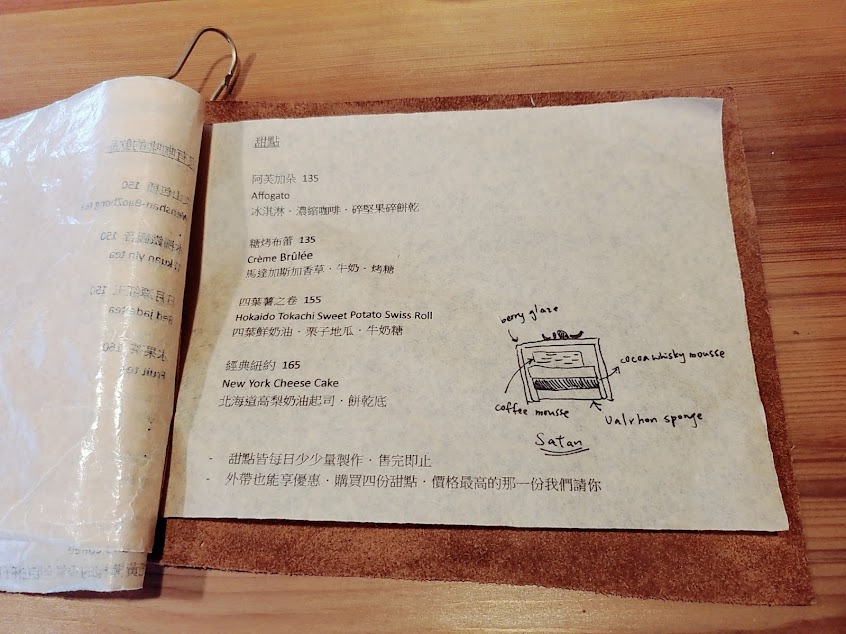 甜點
阿芙加朵 135
Affogato
冰淇淋．濃縮咖啡．碎堅果碎餅乾
糖烤布蕾 135
Crème Brûlée
馬達加斯加香草．牛奶．烤糖
四葉薯之卷 155
Hokaido Tokachi Sweet Potato Swiss Roll
四葉鮮奶油．栗子地瓜．牛奶糖
經典紐約 165
New York Cheese Cake
北海道高梨奶油起司．餅乾底
berry glaze
cocoa whisky mousse
coffee mousse
Valrhon sponge
Satan
- 甜點皆每日少少量製作．售完即止
- 外帶也能享優惠．購買四份甜點．價格最高的那一份我們請你